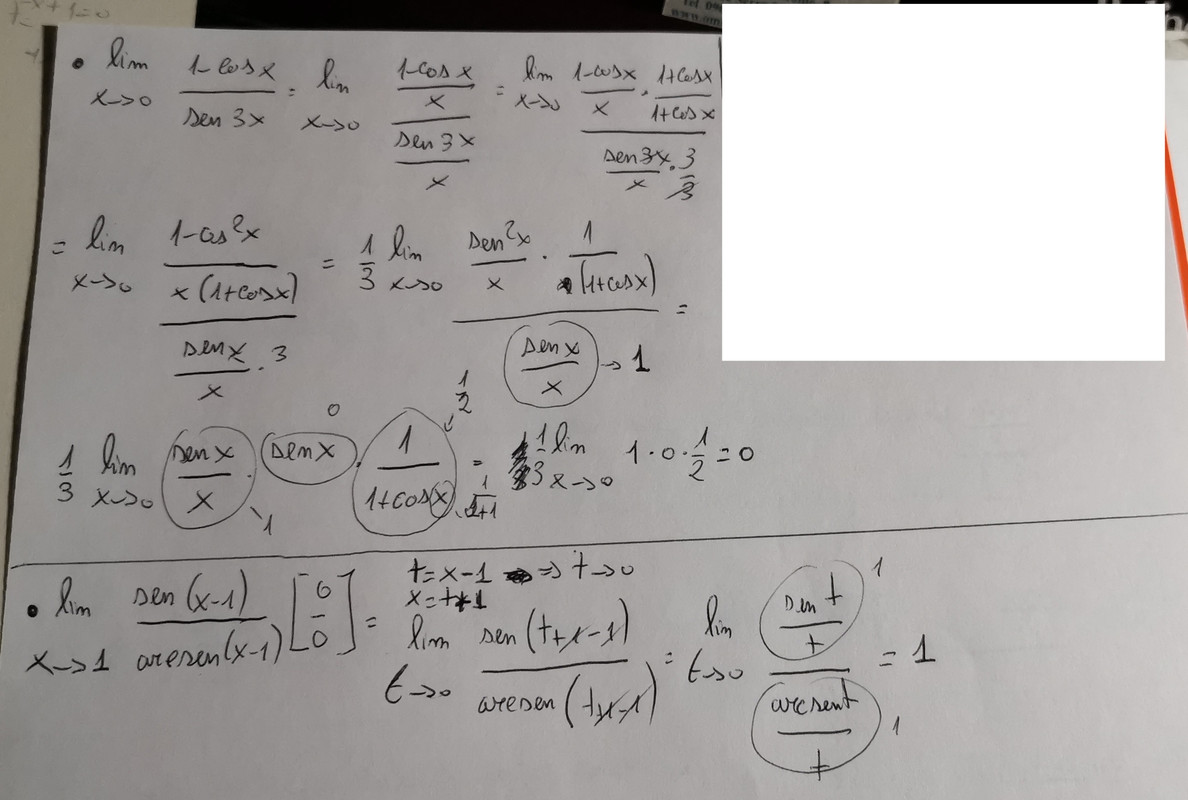 • lim x→0 (1-cosx)/(sen 3x) = lim x→0 ((1-cos x)/x)/((sen 3x)/x) = lim x→0 ((1-cosx)/x · (1+cosx)/(1+cosx))/((sen3x)/x · 3/3)
= lim x→0 ((1-cos²x)/(x(1+cosx)))/((senx)/x · 3) = 1/3 lim x→0 ((sen²x)/x · 1/(1+cosx))/((sen x)/x) → 1 =
1/3 lim x→0 (sen x)/x · sen x · 1/(1+cosx) = 1/3 lim x→0 1·0·1/2=0
1 0 1/2 1/(1+1)
t=x-1 ⇒ t→0
x=t+1
• lim x→1 (sen(x-1))/(arcsen(x-1)) [0/0] = lim t→0 (sen(t+1-1))/(arcsen(t+1-1)) = lim t→0 ((sen t)/t)/((arcsent)/t) = 1
1 1